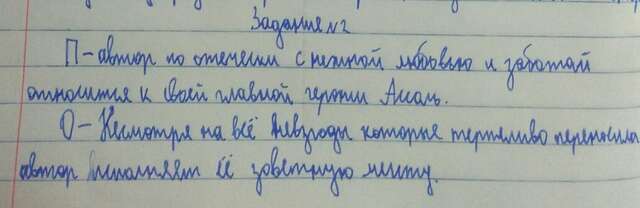 Задание №2
П - автор по отечески с нежной любовью и заботай
относится к своей главной героини Ассоль.
О - Несмотря на всё невзгоды которые терпеливо переносила
автор исполняет её заветную мечту.